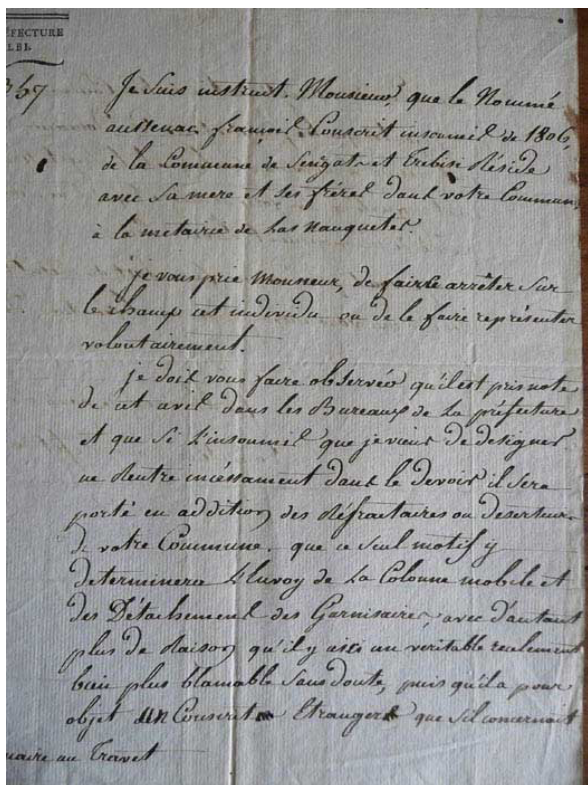 FECTURE
LBI.
Je suis instruit, Monsieur, que le Nommé
austenac françois Conscrit insoumis de 1806,
de la Commune de et Trebin Réside
avec sa mere et ses fréres dans votre Commun
à la metairie de Las nauquetes.
je vous prie Monsieur, de faire arrêter sur
le champ cet individu ou de le faire représenter
volontairement.
je dois vous faire observer qu'il est pris note
de cet avis dans les Bureaux de la préfecture
et que si l'insoumis que je viens de designer
ne Rentre incessament dans le devoir il sera
porté en addition des Réfractaires ou deserteurs
de votre Commune. que ce seul motif y
determinera l'Envoy de la Colonne mobile et
des Détachement des Garnisaires, avec d'autant
plus de Raison qu'il y a ici un veritable recelement
bien plus blamable sans doute, puis qu'il a pour
objet un Conscrit Etranger que s'il concernoit
maire au Travet